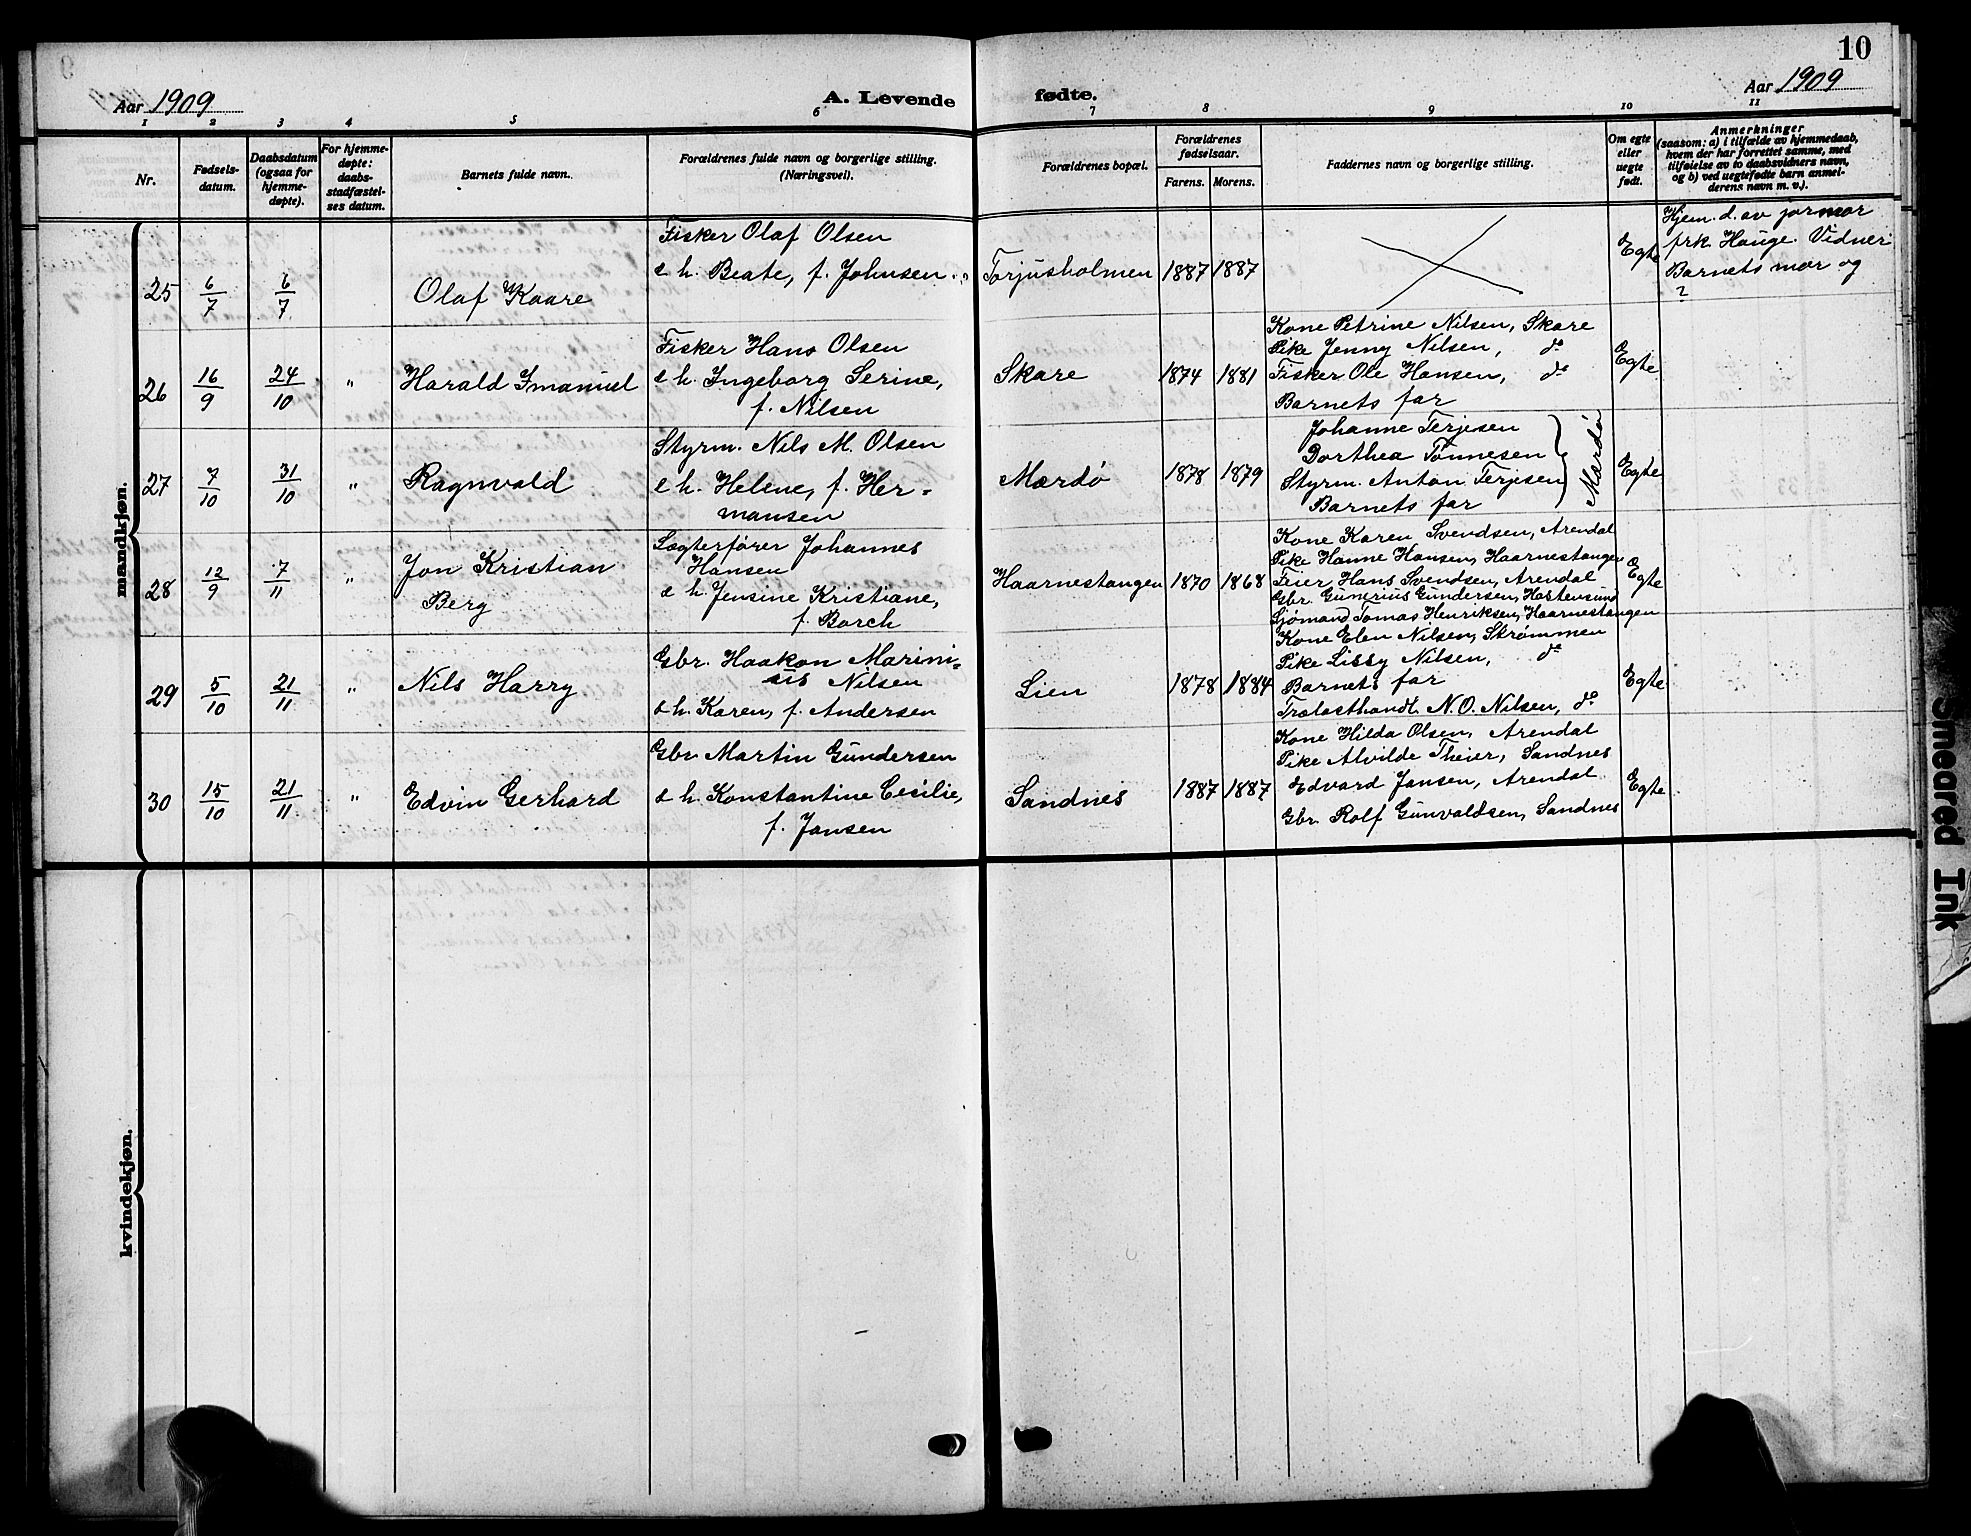 10
Aar 1909
A. Levende fødte.
Aar 1909
1 2 3 4 5 6 7 8 9 10 11
Nr.
Fødsels-
datum.
Daabsdatum
(ogsaa for
hjemme-
døpte).
For hjemme-
døpte:
daabs-
stadfæstel-
ses datum.
Barnets fulde navn.
Forældrenes fulde navn og borgerlige stilling.
(Næringsvei).
Forældrenes bopæl.
Forældrenes
fødselsaar.
Farens. Morens.
Faddernes navn og borgerlige stilling.
Om egte
eller
uegte
født.
Anmerkninger
(saasom: a) i tilfælde av hjemmedaab,
hvem der har forrettet samme, med
tilføielse av to daabsvidners navn,
og b) ved uegtefødte barn anmel-
derens navn m. v.).
mandkjøn.
25
6/7
6/7
"
Olaf Kaare
Fisker Olaf Olsen
e h. Beate, f. Johnsen
Torjusholmen
1887 1887
Egte
Hjem. d. av jormor
frk Hauge. Vidner
Barnets mor og
?
26
16/9
24/10
"
Harald Imanuel
Fisker Hans Olsen
e h. Ingeborg Serine,
f. Nilsen
Skare
1874 1881
Kone Petrine Nilsen, Skare
Pike Jenny Nilsen, do
Fisker Ole Hansen, do
Barnets far
Egte
27
7/10
31/10
"
Ragnvald
Styrm. Nils M. Olsen
e h. Helene, f. Her-
mansen
Mærdø
1878 1879
Johanne Terjesen
Dorthea Tønnesen
Styrm. Anton Terjesen
Barnets far
Mærdø
Egte
28
12/9
7/11
"
Jon Kristian
Berg
Lægterfører Johannes
Hansen
e h. Jensine Kristiane,
f. Borch
Haarnestangen
1870 1868
Kone Karen Svendsen, Arendal
Pike Hanne Hansen, Haarnestangen
Feier Hans Svendsen, Arendal
Gbr. Gumerius Gundersen, Hastensund
Sjømand Tomas Henriksen, Haarnestangen
Egte
29
5/10
21/11
"
Nils Harry
Gbr. Haakon Marini-
us Nilsen
e h. Karen, f. Andersen
Lien
1878 1884
Kone Elen Nilsen, Strømmen
Pike Lissy Nilsen, do
Barnets far
Trælasthandl. N. O. Nilsen, do
Egte
30
15/10
21/11
"
Edvin Gerhard
Gbr. Martin Gundersen
e h. Konstantine Cecilie,
f. Jansen
Sandnes
1887 1887
Kone Hilda Olsen, Arendal
Pike Alvilde Theier, Sandnes
Edvard Jansen, Arendal
Gbr. Rolf Gunvaldsen, Sandnes
Egte
kvindekjøn.
Smeared Ink